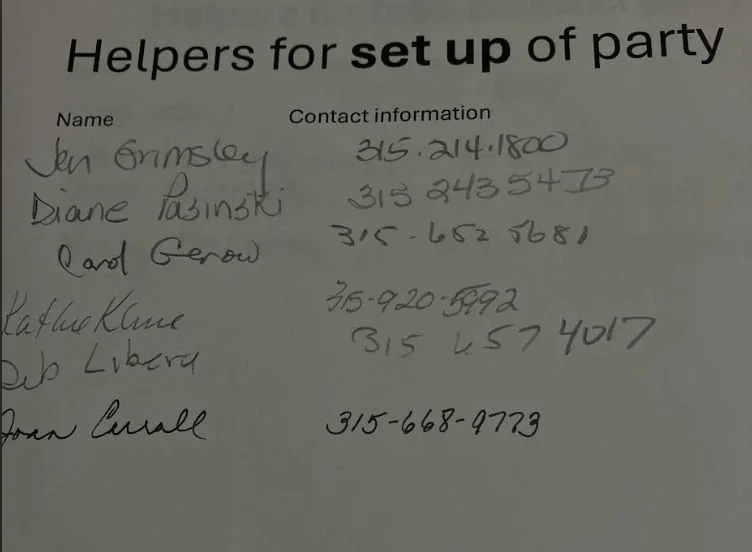 Helpers for set up of party
Name Contact information
Jen Grimsley 315.214.1800
Diane Pasinski 315 243 5473
Carol Gerow 315-652 5681
Kathie Kline 315-920-5992
Deb Libera 315 657 4017
Joan 315-668-9773